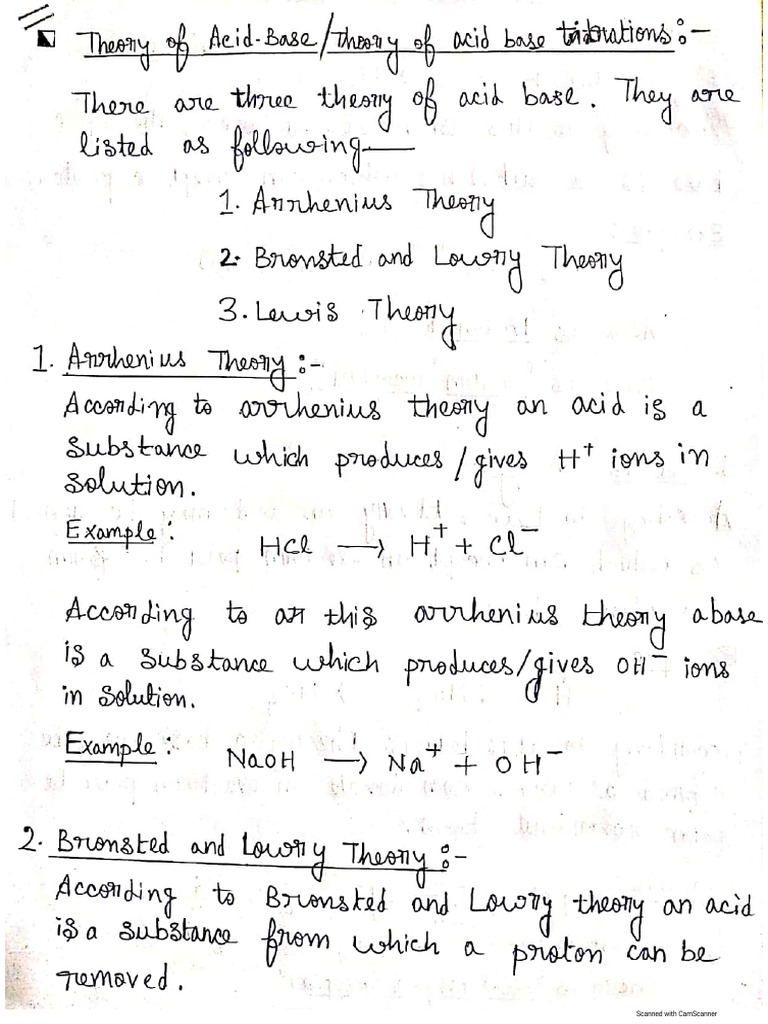 Theory of Acid-Base/Theory of acid base titrations:-
There are three theory of acid base. They are
listed as following—
1. Arrhenius Theory
2. Bronsted and Lowry Theory
3. Lewis Theory
1. Arrhenius Theory:-
According to arrhenius theory an acid is a
substance which produces/gives H⁺ ions in
solution.
Example:
HCl → H⁺ + Cl⁻
According to this arrhenius theory a base
is a substance which produces/gives OH⁻ ions
in solution.
Example:
NaOH → Na⁺ + OH⁻
2. Bronsted and Lowry Theory:-
According to Bronsted and Lowry theory an acid
is a substance from which a proton can be
removed.
Scanned with CamScanner